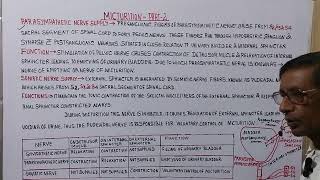 MICTURITION - PART-2
PARASYMPATHETIC NERVE SUPPLY - PREGANGLIONIC FIBERS OF PARASYMPATHETIC NERVE ARISE FROM S2, S3 & S4
SACRAL SEGMENT OF SPINAL CORD & FORM PELVIC NERVE. THESE FIBERS RUN THROUGH HYPOGASTRIC GANGLION &
SYNAPSE & POSTGANGLIONIC NEURONS SITUATED IN CLOSE RELATION TO URINARY BLADDER & INTERNAL SPHINCTER.
FUNCTION - STIMULATION OF PELVIC NERVE CAUSES CONTRACTION OF DETRUSOR MUSCLE & RELAXATION OF INTERNAL
SPHINCTER LEADING TO EMPTYING OF URINARY BLADDER. DUE TO WHICH PARASYMPATHETIC NERVE IS KNOWN AS
NERVE OF EMPTYING OR NERVE OF MICTURITION.
SOMATIC NERVE SUPPLY - EXTERNAL SPHINCTER IS INNERVATED BY SOMATIC NERVE FIBERS KNOWN AS PUDENDAL NERVE
WHICH ARISES FROM S2, S3 & S4 SACRAL SEGMENTS OF SPINAL CORD.
FUNCTIONS - MAINTAINS THE TONIC CONTRACTION OF THE SKELETAL MUSCLE FIBERS OF THE EXTERNAL SPHINCTER &
THIS SPHINCTER CONSTRICTED ALWAYS
DURING MICTURITION THIS NERVE IS INHIBITED, IT CAUSES RELAXATION OF EXTERNAL SPHINCTER LEADING TO
VOIDING OF URINE. THUS THE PUDENDAL NERVE IS RESPONSIBLE FOR VOLUNTARY CONTROL OF MICTURITION.
NERVE DETRUSOR MUSCLE ON INTERNAL SPHINCTER ON EXTERNAL SPHINCTER FUNCTION
SYMPATHETIC NERVE RELAXATION CONTRACTION NOT SUPPLIED FILLING OF URINARY BLADDER
PARASYMPATHETIC NERVE CONTRACTION RELAXATION NOT SUPPLIED EMPTYING OF URINARY BLADDER
SOMATIC NERVE NOT SUPPLIED NOT SUPPLIED CONTRACTION VOLUNTARY CONTROL OF MICTURITION